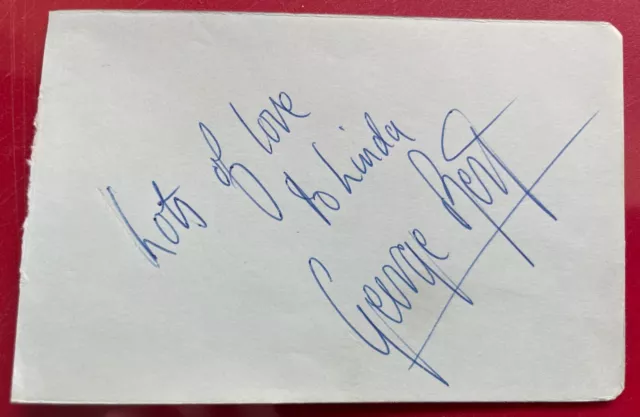 Lots of love
to Linda
George Best